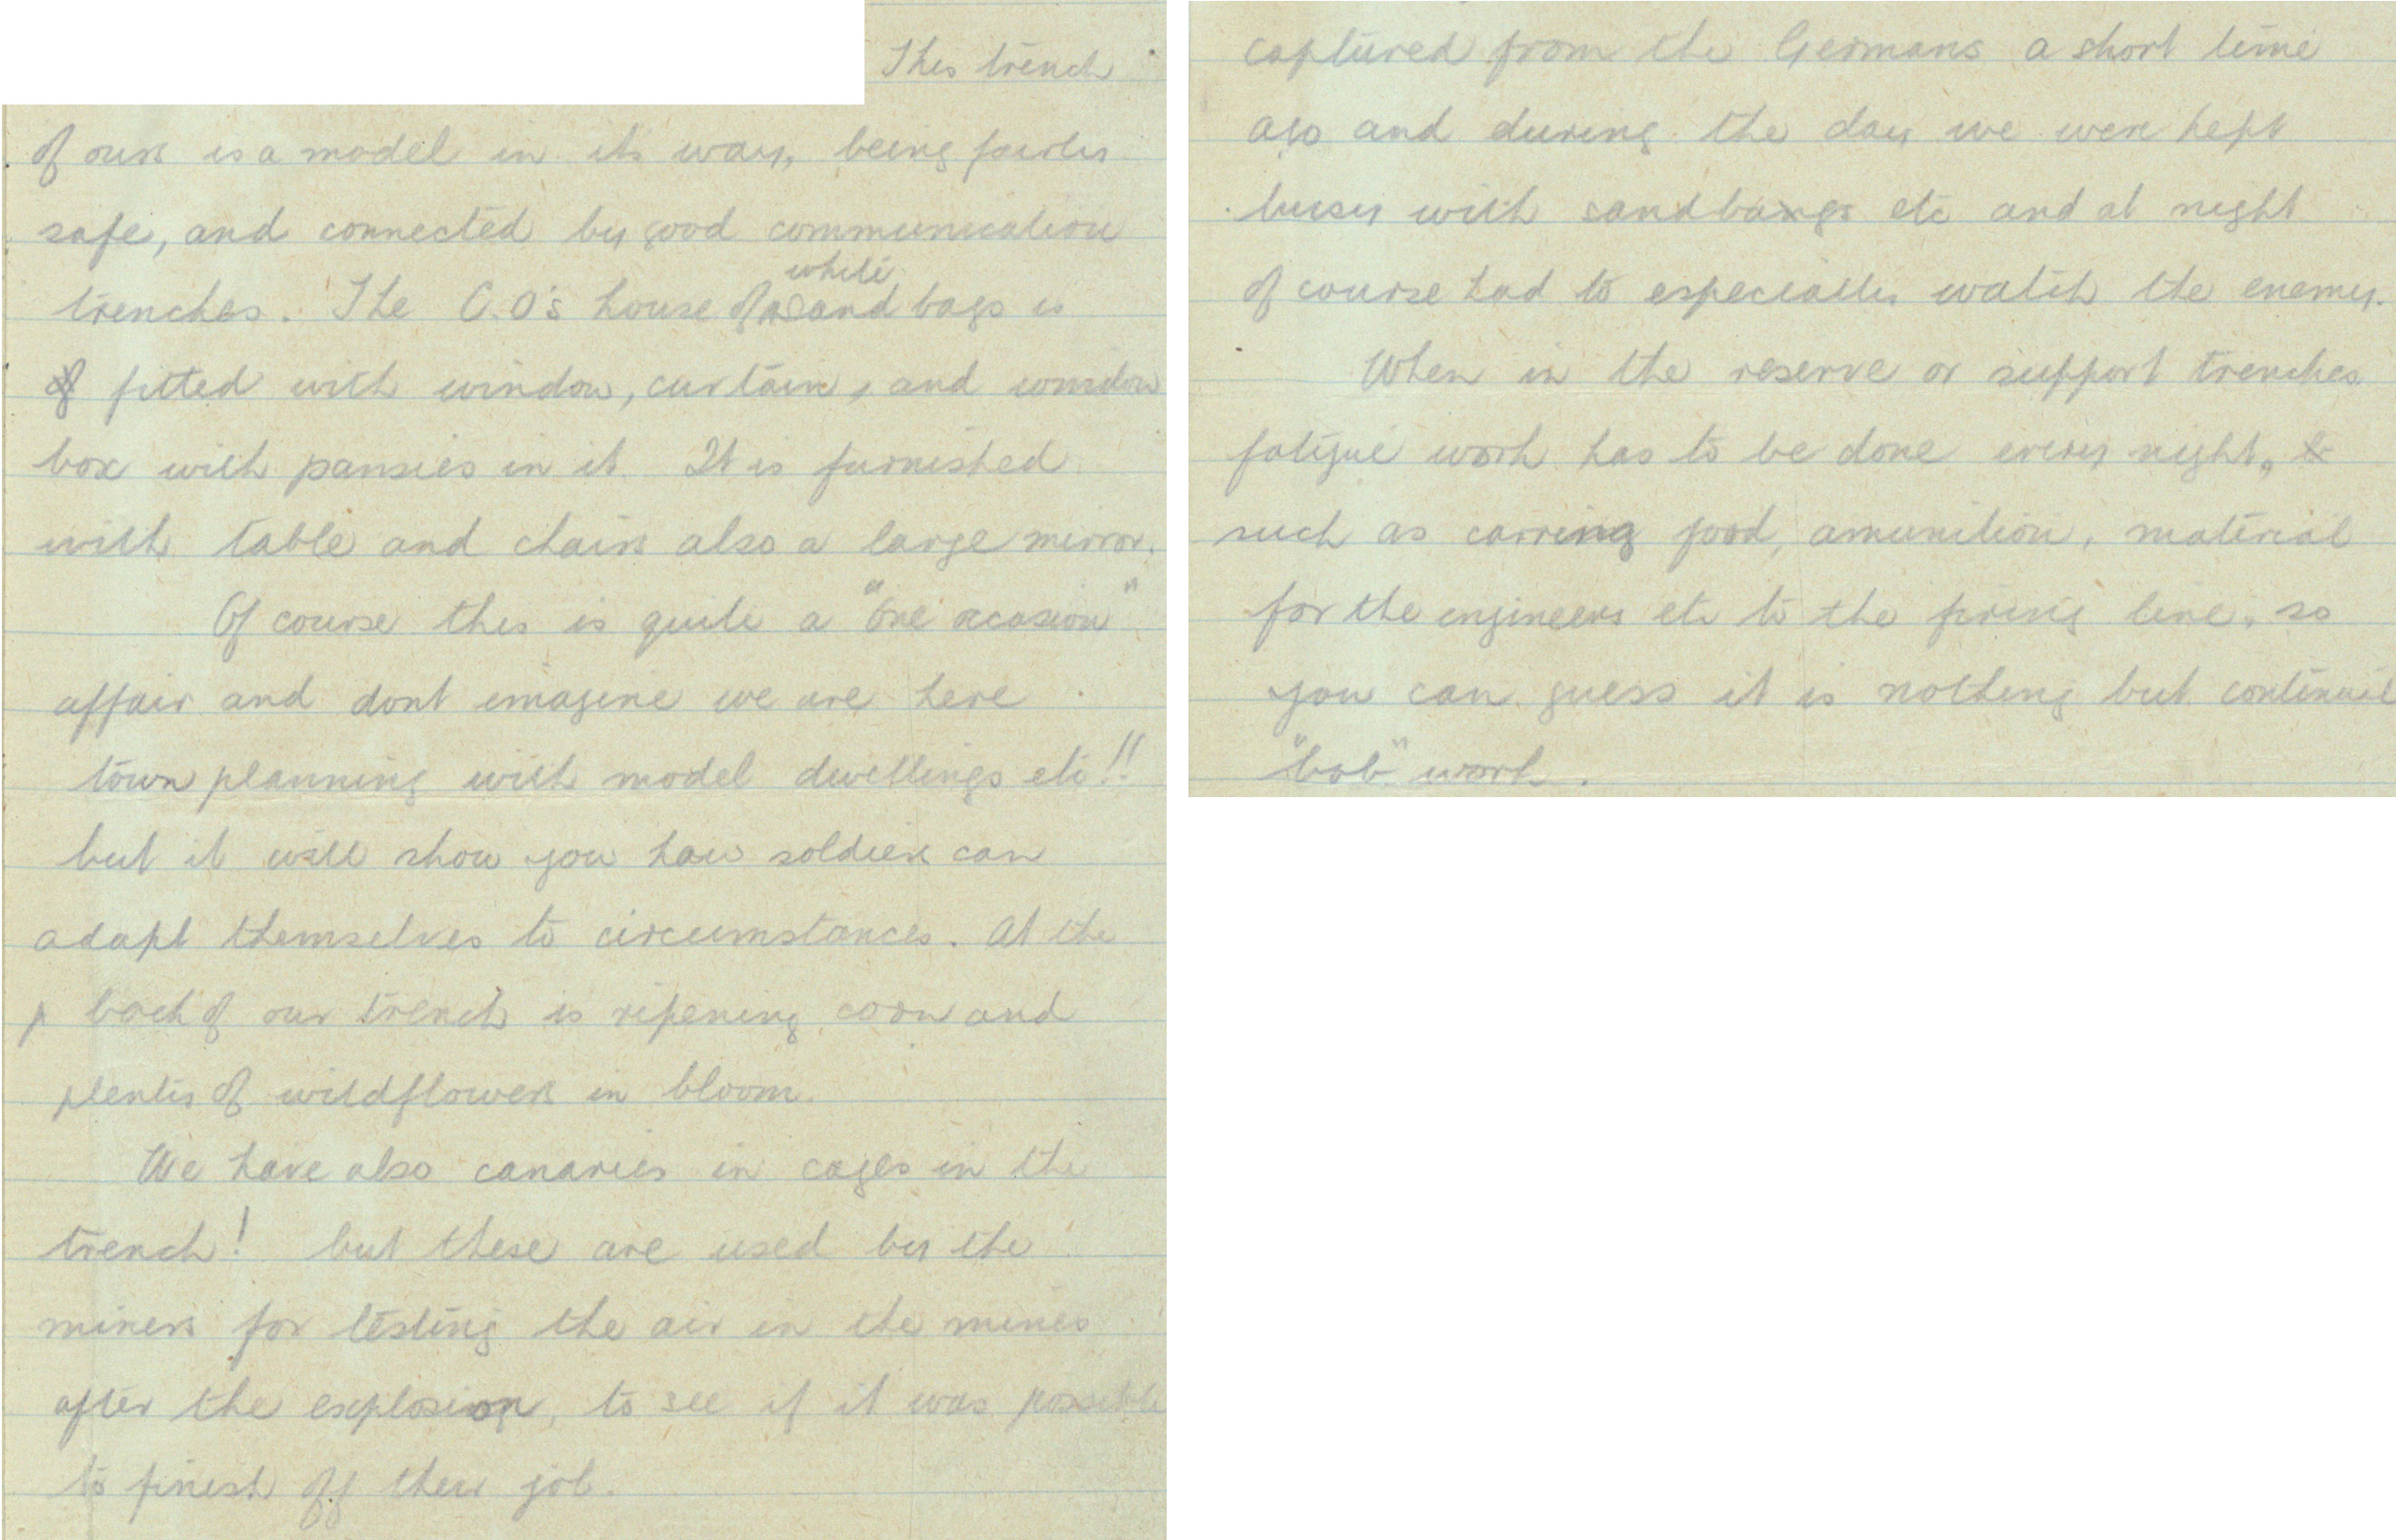 This trench
of ours is a model in its way, being fairly
safe, and connected by good communication
trenches. The C.O's house of white sand bags is
fitted with window, curtain, and window
box with pansies in it It is furnished
with table and chairs also a large mirror.
Of course this is quite a "one occasion"
affair and dont imagine we are here
town planning with model dwellings etc!!
but it will show you how soldiers can
adapt themselves to circumstances. At the
back of our trench is ripening corn and
plenty of wildflowers in bloom.
We have also canaries in cages in the
trench! but these are used by the
miners for testing the air in the mines
after the explosion, to see if it was possible
to finish off their job.
captured from the Germans a short time
ago and during the day we were kept
busy with sandbags etc and at night
of course had to especially watch the enemy.
When in the reserve or support trenches
fatigue work has to be done every night,
such as carring food, amunition, material
for the engineers etc to the firing line. so
you can guess it is nothing but continual
"bob" work.